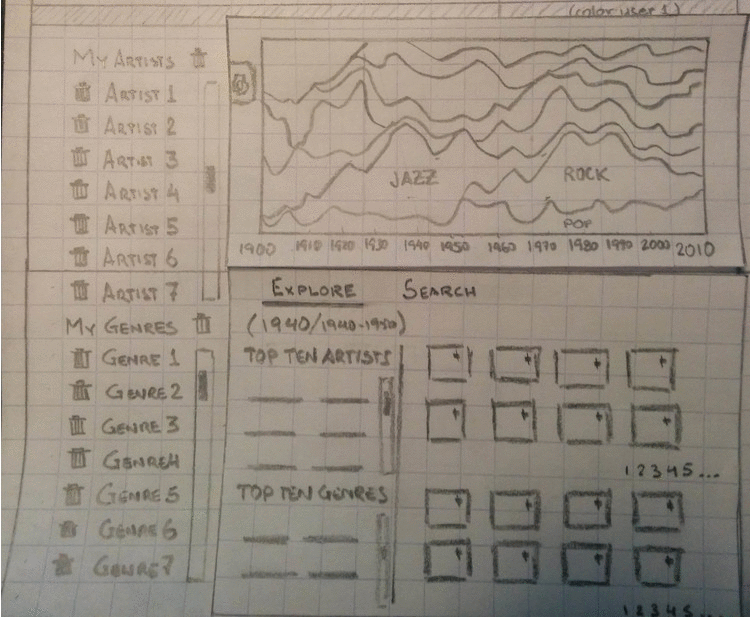 (color user 1)
MY ARTISTS
ARTIST 1
ARTIST 2
ARTIST 3
ARTIST 4
ARTIST 5
ARTIST 6
ARTIST 7
MY GENRES
GENRE 1
GENRE 2
GENRE 3
GENRE 4
GENRE 5
GENRE 6
GENRE 7
JAZZ
ROCK
POP
1900 1910 1920 1930 1940 1950 1960 1970 1980 1990 2000 2010
EXPLORE SEARCH
(1940/1940-1950)
TOP TEN ARTISTS
1 2 3 4 5 ...
TOP TEN GENRES
1 2 3 4 5 ...